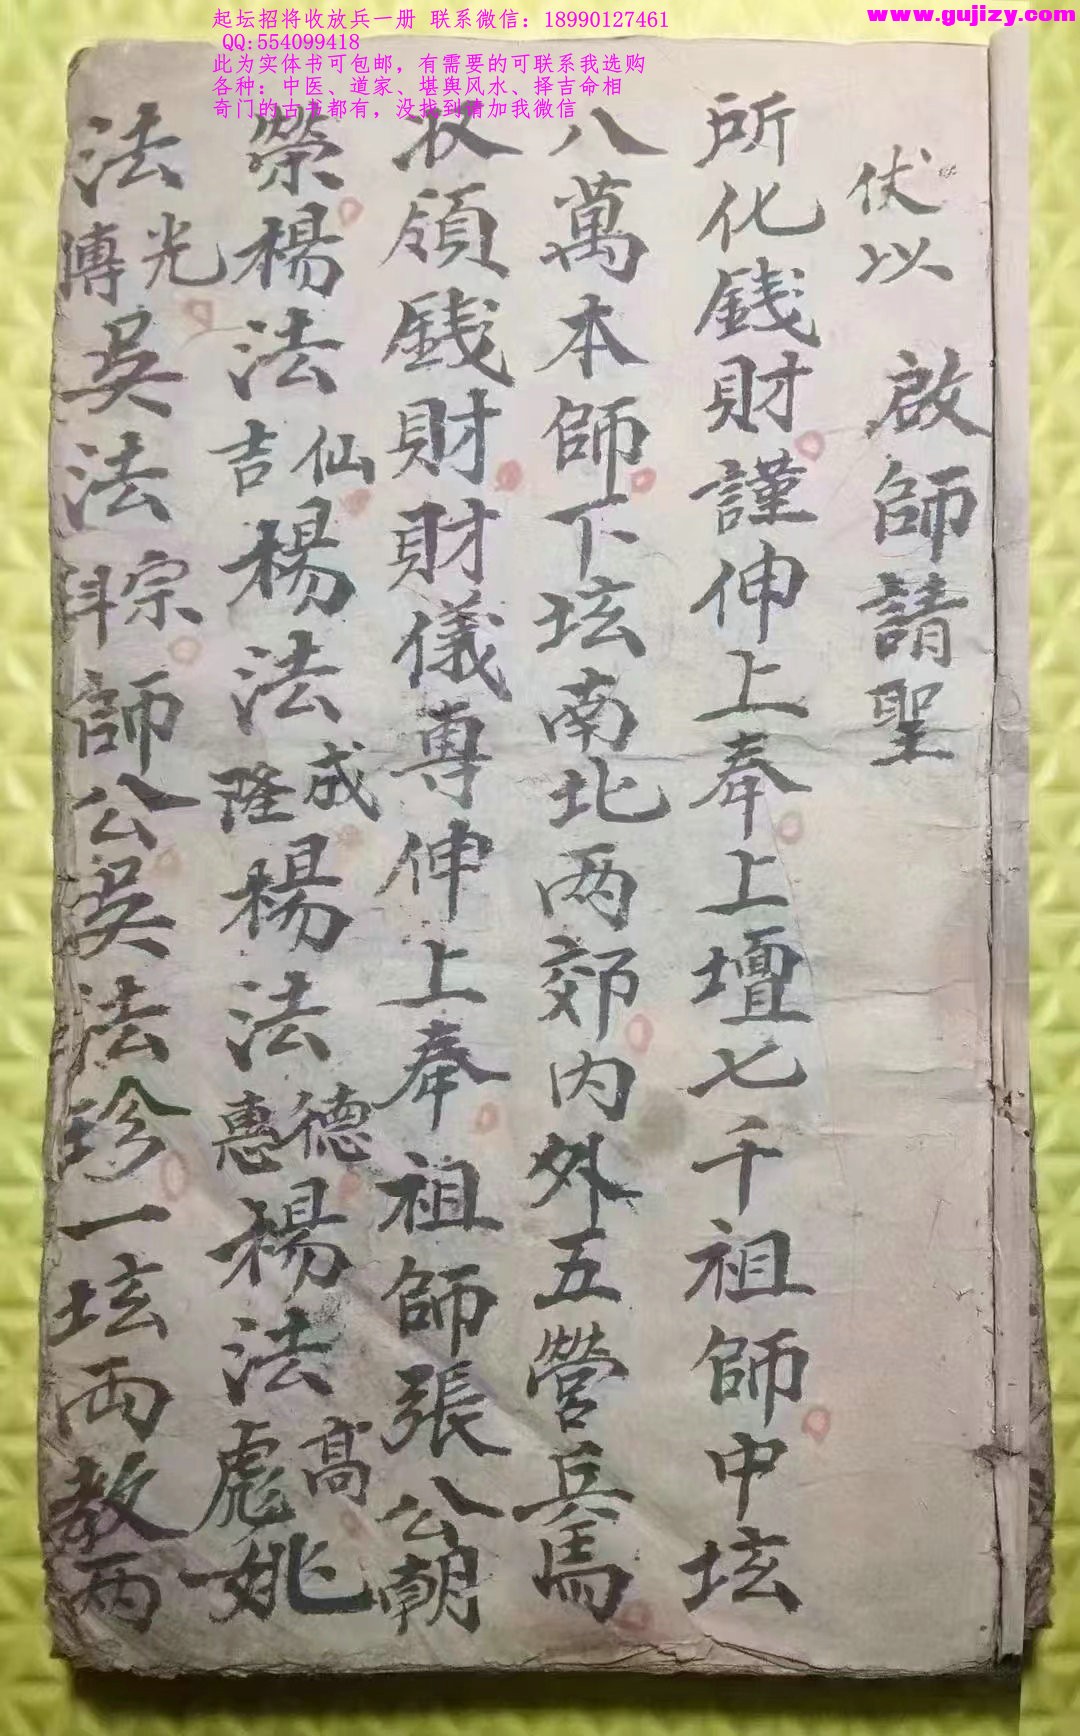 起坛招将收放兵一册 联系微信：18990127461
QQ:554099418
此为实体书可包邮，有需要的可联系我选购
各种：中医、道家、堪舆风水、择吉命相
奇门的古书都有，没找到请加我微信
www.gujizy.com
伏以 啟師請聖
所化銭財謹伸上奉上壇七千祖師中坛
八萬本師下坛南北两郊内外五營兵馬
收領銭財財儀專伸上奉祖師張公朝
榮楊法仙吉楊法成隆楊法德惠楊法高彪姚
法光博吳法宗科師公吳法珍一坛兩教两